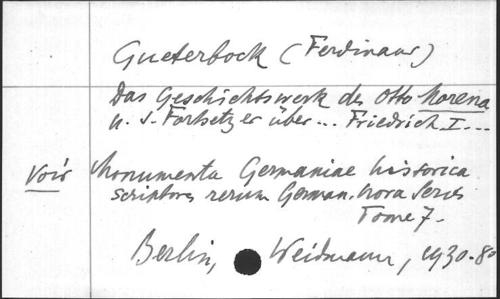 Gueterbock (Ferdinand)
Das Geschichtswerk des Otto Morena
u. s. Fortsetzer über ... Friedrich I ...
Voir Monumenta Germaniae historica
Scriptores rerum German. Nova Series
Tome 7.
Berlin, Weidmann, 1930. 8º